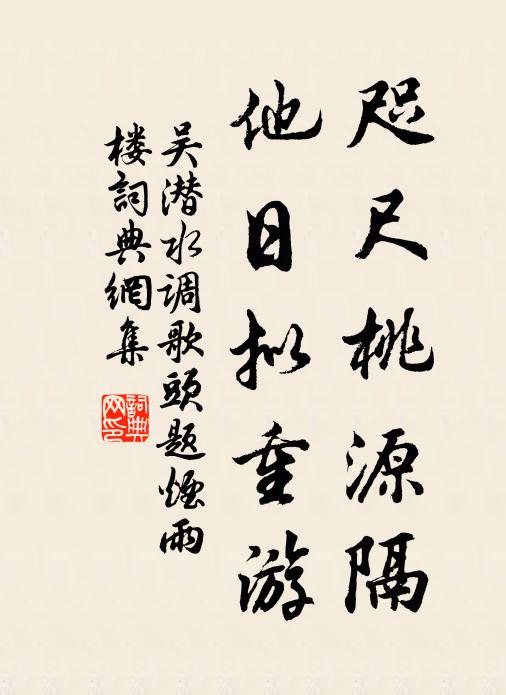 咫尺桃源隔
他日拟重游
吴潜水调歌头题烟雨
楼词典網集
詞典网印